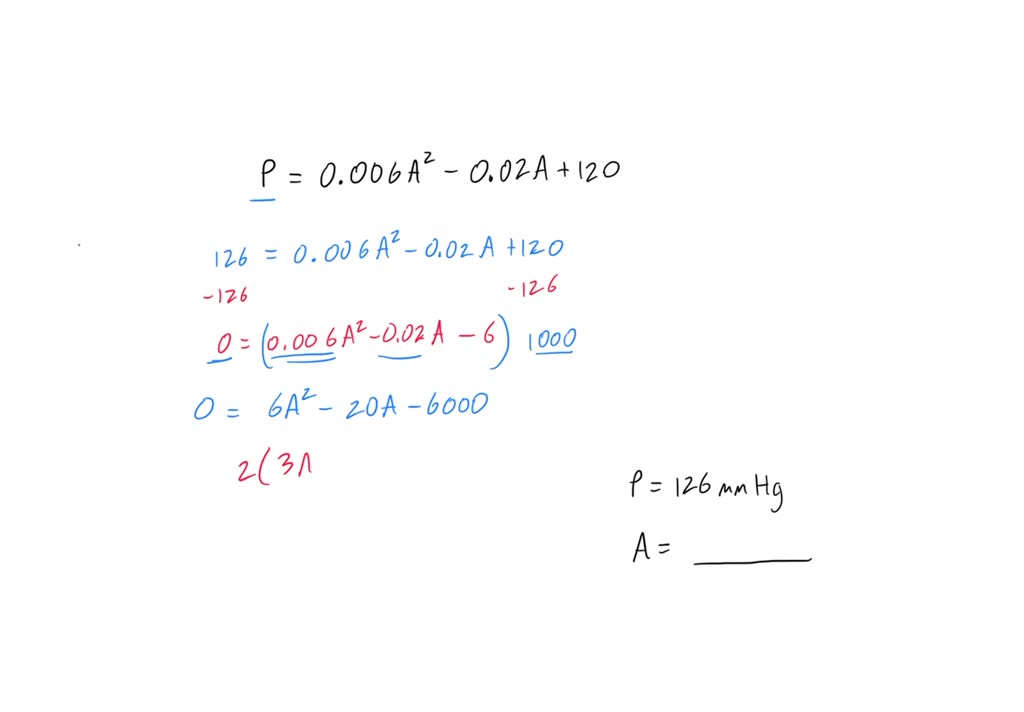 P = 0.006A² - 0.02A + 120
126 = 0.006A² - 0.02A + 120
-126 -126
0 = (0.006A² - 0.02A - 6) 1000
0 = 6A² - 20A - 6000
2(3A
P = 126 mm Hg
A = ______